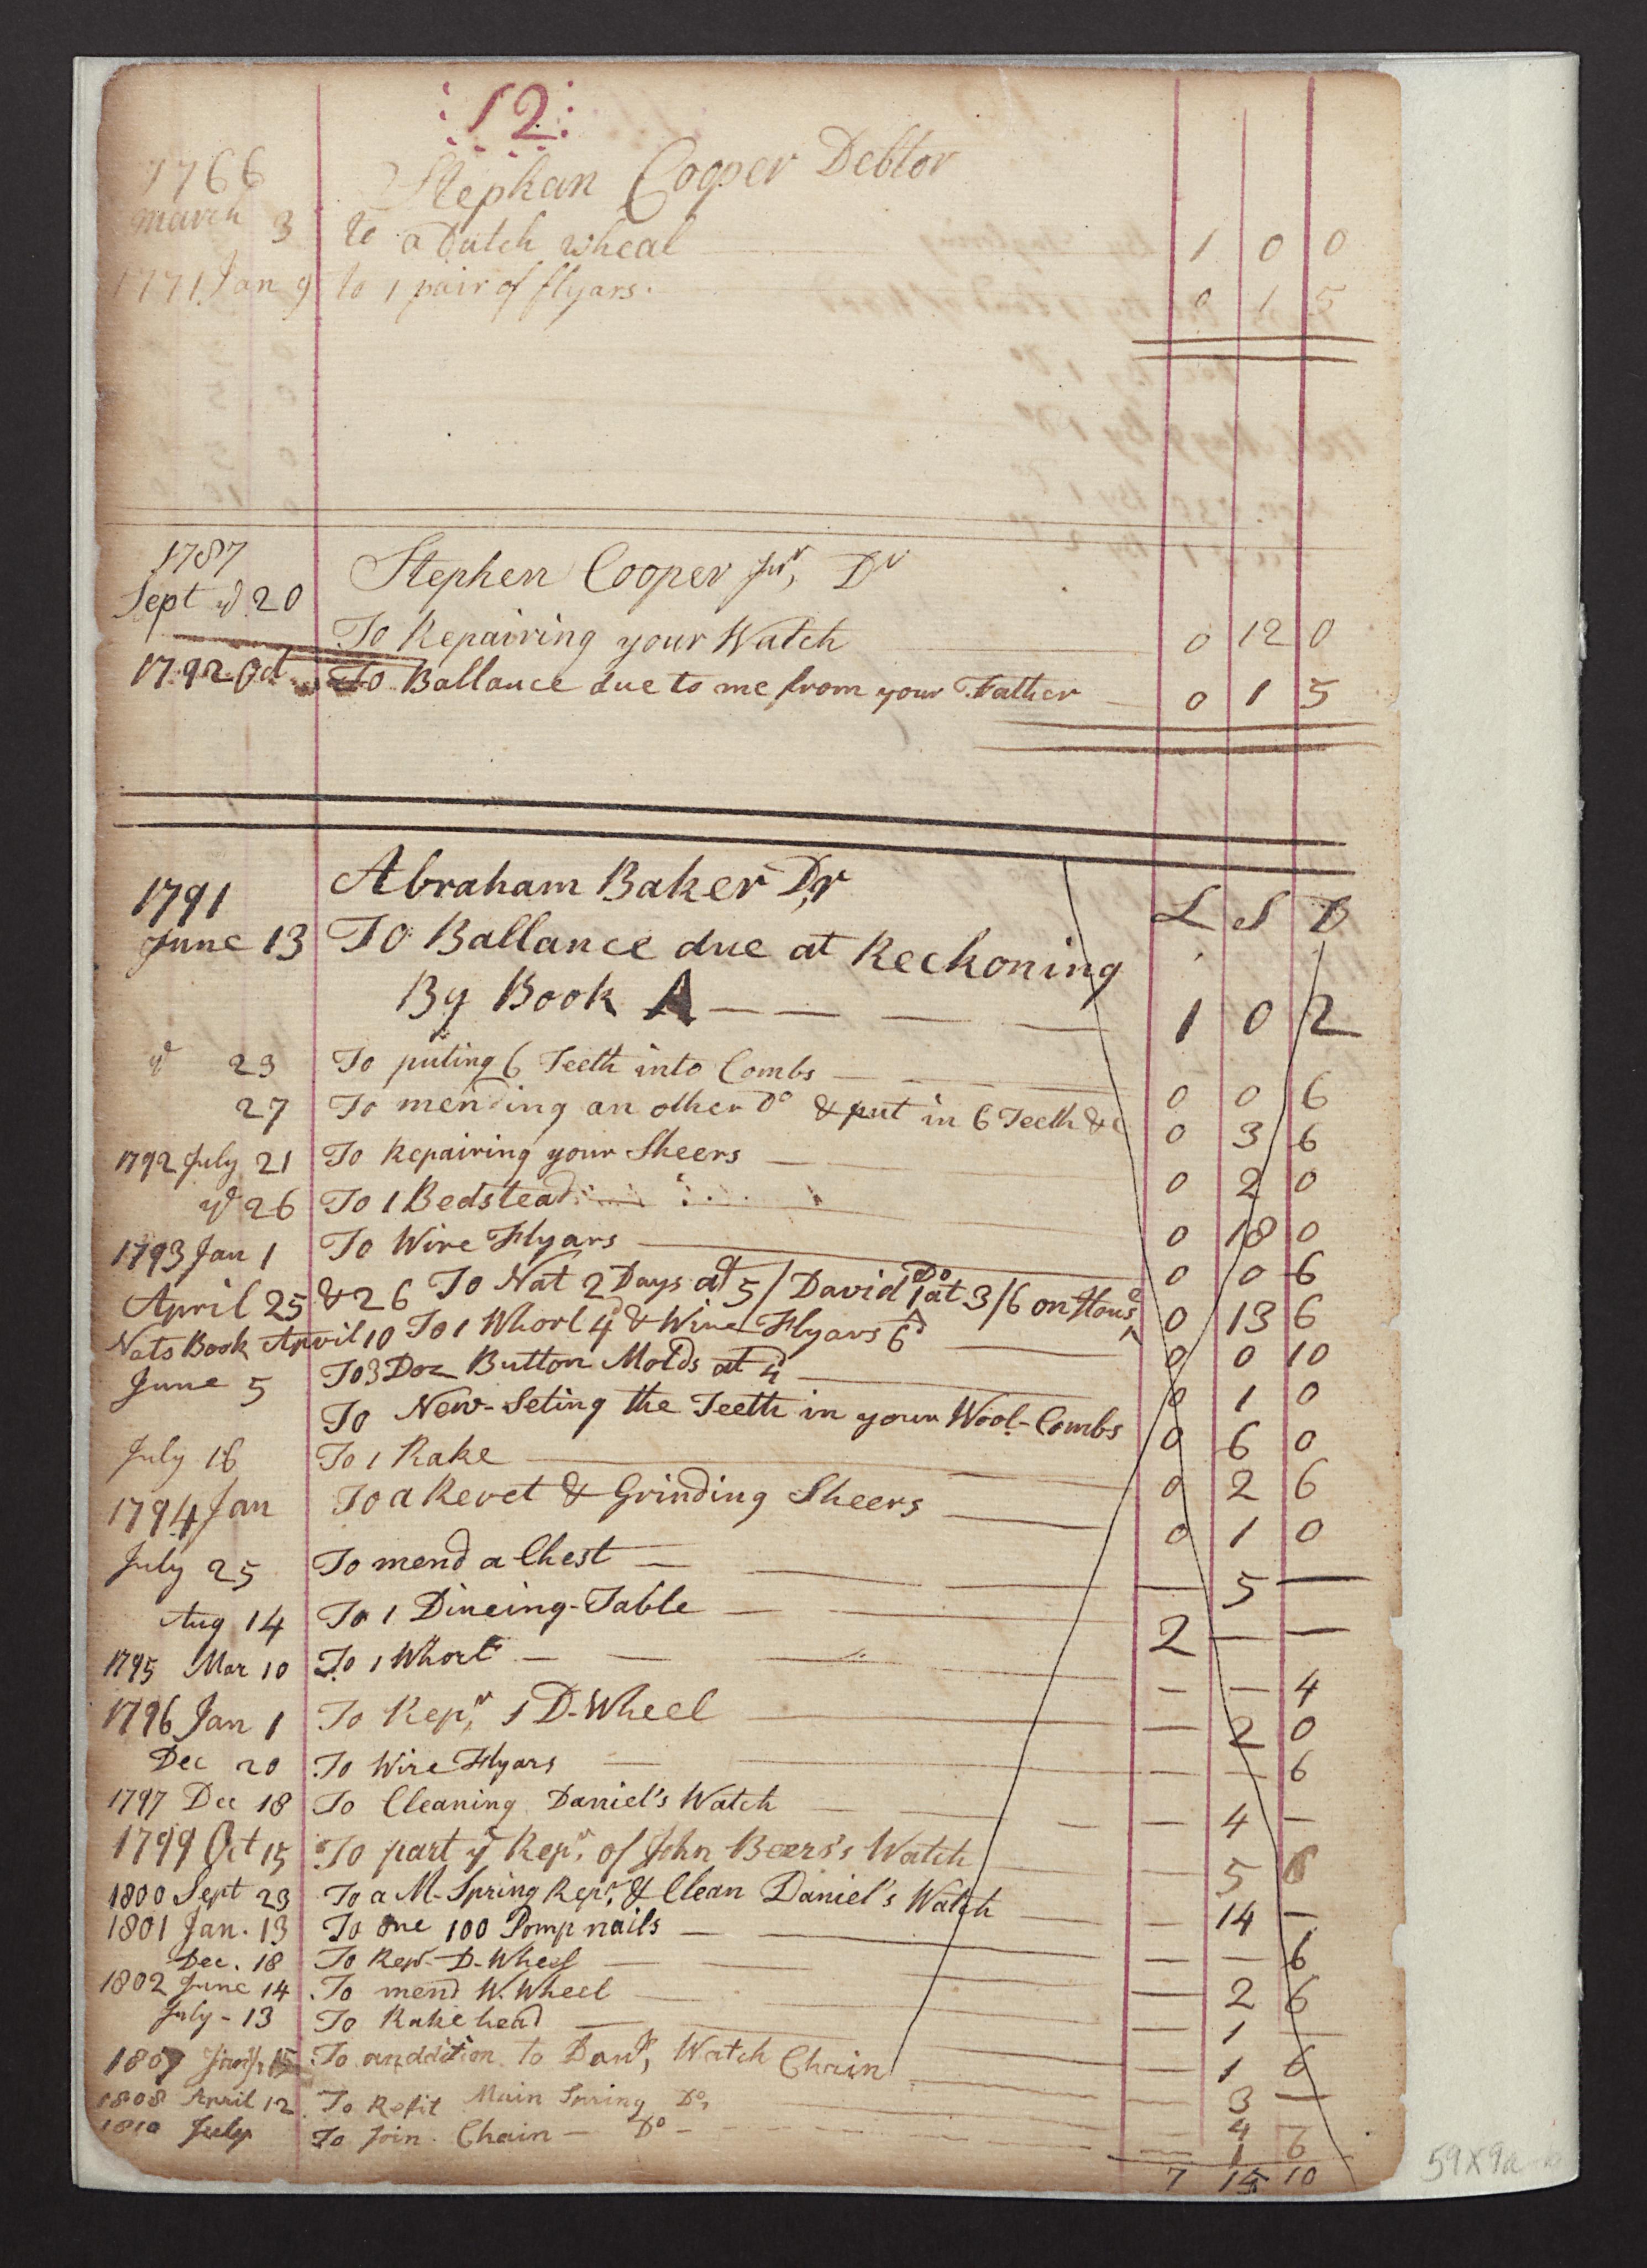 :12:
1766 Stephan Cooper Debtor
march 3 to a Dutch wheal 1 0 0
1771 Jan 9 to 1 pair of flyars. 0 1 5
1787 Stephen Cooper Jnr, Dr
Sept ye 20
To Repairing your Watch 0 12 0
1792 Oct To Ballance due to me from your Father 0 1 5
1791 Abraham Baker Dr L S D
June 13 To Ballance due at Reckoning
By Book A — — — — 1 0 2
ye 23 To puting 6 Teeth into Combs — 0 0 6
27 To mending an other Do & put in 6 Teeth &c 0 3 6
1792 July 21 To Repairing your Sheers — 0 2 0
ye 26 To 1 Bedstead 0 18 0
1793 Jan 1 To Wire Flyars — 0 0 6
April 25 & 26 To Nat 2 Days at 5/ David 1 Do at 3/6 on House 0 13 6
Nats Book April 10 To 1 Whorl 4d & Wire Flyars 6d — 0 0 10
June 5 To 3 Doz Button Molds at 4d — 0 1 0
To New-Seting the Teeth in your Wool-Combs 0 6 0
July 16 To 1 Rake — 0 2 6
1794 Jan To a Revet & Grinding Sheers — 0 1 0
July 25 To mend a Chest — — 5 —
Aug 14 To 1 Dineing-Table — 2 — —
1795 Mar 10 To 1 Whorl — — — 4
1796 Jan 1 To Repr, 1 D-Wheel — — 2 0
Dec 20 To Wire Flyars — — — 6
1797 Dec 18 To Cleaning Daniel's Watch — — 4 —
1799 Oct 15 To part ye Repr, of John Beers's Watch — — 5
1800 Sept 23 To a M-Spring Repr, & Clean Daniel's Watch — — 14 —
1801 Jan. 13 To one 100 Pomp nails — — — 6
Dec. 18 To Repr- D-Wheel — — 2 6
1802 June 14 To mend W. Wheel — — 1 —
July - 13 To Rake head — — 1 6
1807 15 To anddition to Danls, Watch Chain — — 3 —
1808 April 12 To Refit Main Spring Do, — — 4
1810 July To Join Chain — Do — — 1 6
7 15 10
59X9a